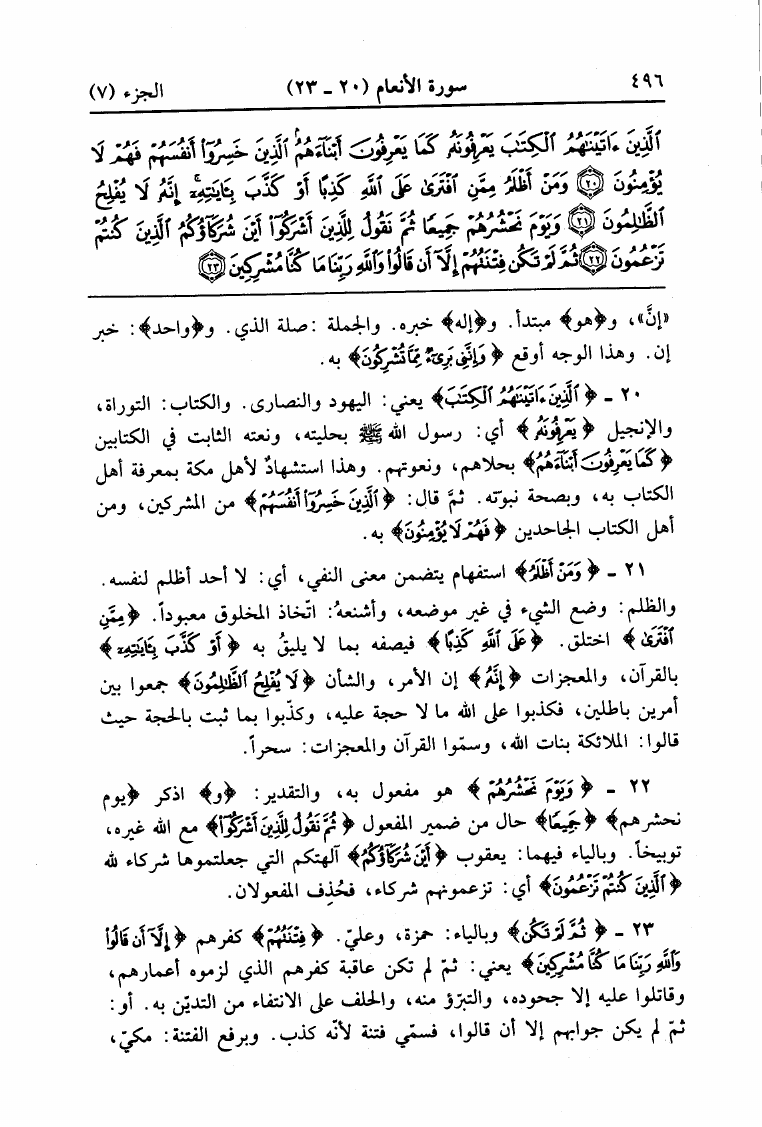 ٤٩٦ سورة الأنعام (٢٠ ـ ٢٣) الجزء (٧)
ٱلَّذِينَ ءَاتَيْنَٰهُمُ ٱلْكِتَٰبَ يَعْرِفُونَهُۥ كَمَا يَعْرِفُونَ أَبْنَآءَهُمُ ۘ ٱلَّذِينَ خَسِرُوٓا۟ أَنفُسَهُمْ فَهُمْ لَا
يُؤْمِنُونَ ﴿٢٠﴾ وَمَنْ أَظْلَمُ مِمَّنِ ٱفْتَرَىٰ عَلَى ٱللَّهِ كَذِبًا أَوْ كَذَّبَ بِـَٔايَٰتِهِۦٓ ۗ إِنَّهُۥ لَا يُفْلِحُ
ٱلظَّٰلِمُونَ ﴿٢١﴾ وَيَوْمَ نَحْشُرُهُمْ جَمِيعًا ثُمَّ نَقُولُ لِلَّذِينَ أَشْرَكُوٓا۟ أَيْنَ شُرَكَآؤُكُمُ ٱلَّذِينَ كُنتُمْ
تَزْعُمُونَ ﴿٢٢﴾ ثُمَّ لَمْ تَكُن فِتْنَتُهُمْ إِلَّآ أَن قَالُوا۟ وَٱللَّهِ رَبِّنَا مَا كُنَّا مُشْرِكِينَ ﴿٢٣﴾
«إنَّ»، و﴿هو﴾ مبتدأ. و﴿إله﴾ خبره. والجملة :صلة الذي. و﴿واحد﴾: خبر
إن. وهذا الوجه أوقع ﴿وَإِنَّنِى بَرِىٓءٌ مِّمَّا تُشْرِكُونَ﴾ به.
٢٠ ـ ﴿ٱلَّذِينَ ءَاتَيْنَٰهُمُ ٱلْكِتَٰبَ﴾ يعني: اليهود والنصارى. والكتاب: التوراة،
والإنجيل ﴿يَعْرِفُونَهُۥ﴾ أي: رسول الله ﷺ بحليته، ونعته الثابت في الكتابين
﴿كَمَا يَعْرِفُونَ أَبْنَآءَهُمُ﴾ بحلاهم، ونعوتهم. وهذا استشهادٌ لأهل مكة بمعرفة أهل
الكتاب به، وبصحة نبوّته. ثمَّ قال: ﴿ٱلَّذِينَ خَسِرُوٓا۟ أَنفُسَهُمْ﴾ من المشركين، ومن
أهل الكتاب الجاحدين ﴿فَهُمْ لَا يُؤْمِنُونَ﴾ به.
٢١ ـ ﴿وَمَنْ أَظْلَمُ﴾ استفهام يتضمن معنى النفي، أي: لا أحد أظلم لنفسه.
والظلم: وضع الشيء في غير موضعه، وأشنعهُ: اتّخاذ المخلوق معبوداً. ﴿مِمَّنِ
ٱفْتَرَىٰ﴾ اختلق. ﴿عَلَى ٱللَّهِ كَذِبًا﴾ فيصفه بما لا يليقُ به ﴿أَوْ كَذَّبَ بِـَٔايَٰتِهِۦٓ﴾
بالقرآن، والمعجزات ﴿إِنَّهُۥ﴾ إن الأمر، والشأن ﴿لَا يُفْلِحُ ٱلظَّٰلِمُونَ﴾ جمعوا بين
أمرين باطلين، فكذبوا على الله ما لا حجة عليه، وكذّبوا بما ثبت بالحجة حيث
قالوا: الملائكة بنات الله، وسمّوا القرآن والمعجزات: سحراً.
٢٢ ـ ﴿وَيَوْمَ نَحْشُرُهُمْ﴾ هو مفعول به، والتقدير: ﴿و﴾ اذكر ﴿يوم
نحشرهم﴾ ﴿جَمِيعًا﴾ حال من ضمير المفعول ﴿ثُمَّ نَقُولُ لِلَّذِينَ أَشْرَكُوٓا۟﴾ مع الله غيره،
توبيخاً. وبالياء فيهما: يعقوب ﴿أَيْنَ شُرَكَآؤُكُمُ﴾ آلهتكم التي جعلتموها شركاء لله
﴿ٱلَّذِينَ كُنتُمْ تَزْعُمُونَ﴾ أي: تزعمونهم شركاء، فحُذِف المفعولان.
٢٣ ـ ﴿ثُمَّ لَمْ تَكُن﴾ وبالياء: حمزة، وعليّ. ﴿فِتْنَتُهُمْ﴾ كفرهم ﴿إِلَّآ أَن قَالُوا۟
وَٱللَّهِ رَبِّنَا مَا كُنَّا مُشْرِكِينَ﴾ يعني: ثمّ لم تكن عاقبة كفرهم الذي لزموه أعمارهم،
وقاتلوا عليه إلا جحوده، والتبرّؤ منه، والحلف على الانتفاء من التديّن به. أو:
ثمّ لم يكن جوابهم إلا أن قالوا، فسمّي فتنة لأنّه كذب. وبرفع الفتنة: مكيّ،